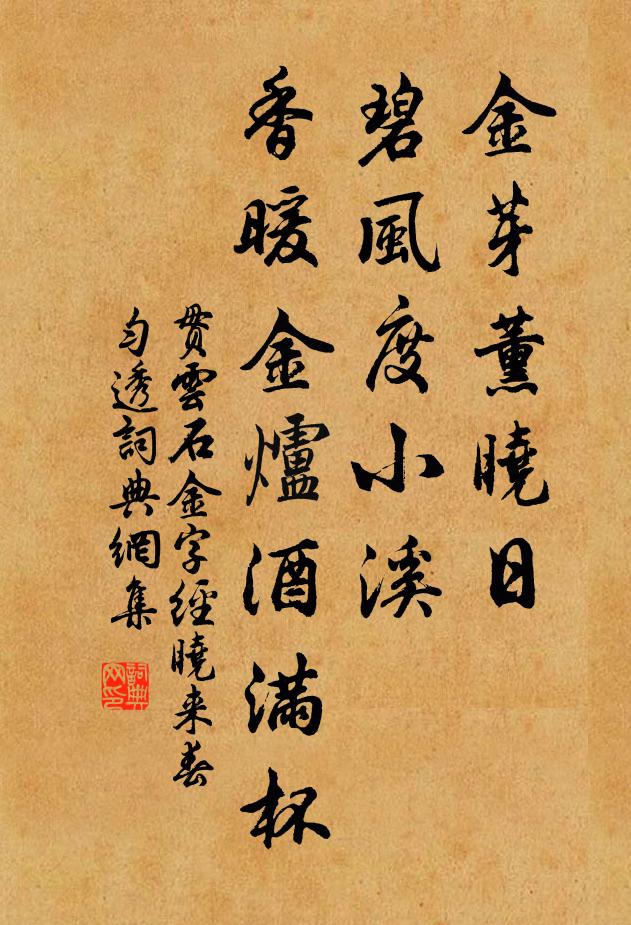 金芽薰曉日
碧風度小溪
香暖金爐酒滿杯
貫雲石金字經曉来春
匀透詞典網集
詞典
网印